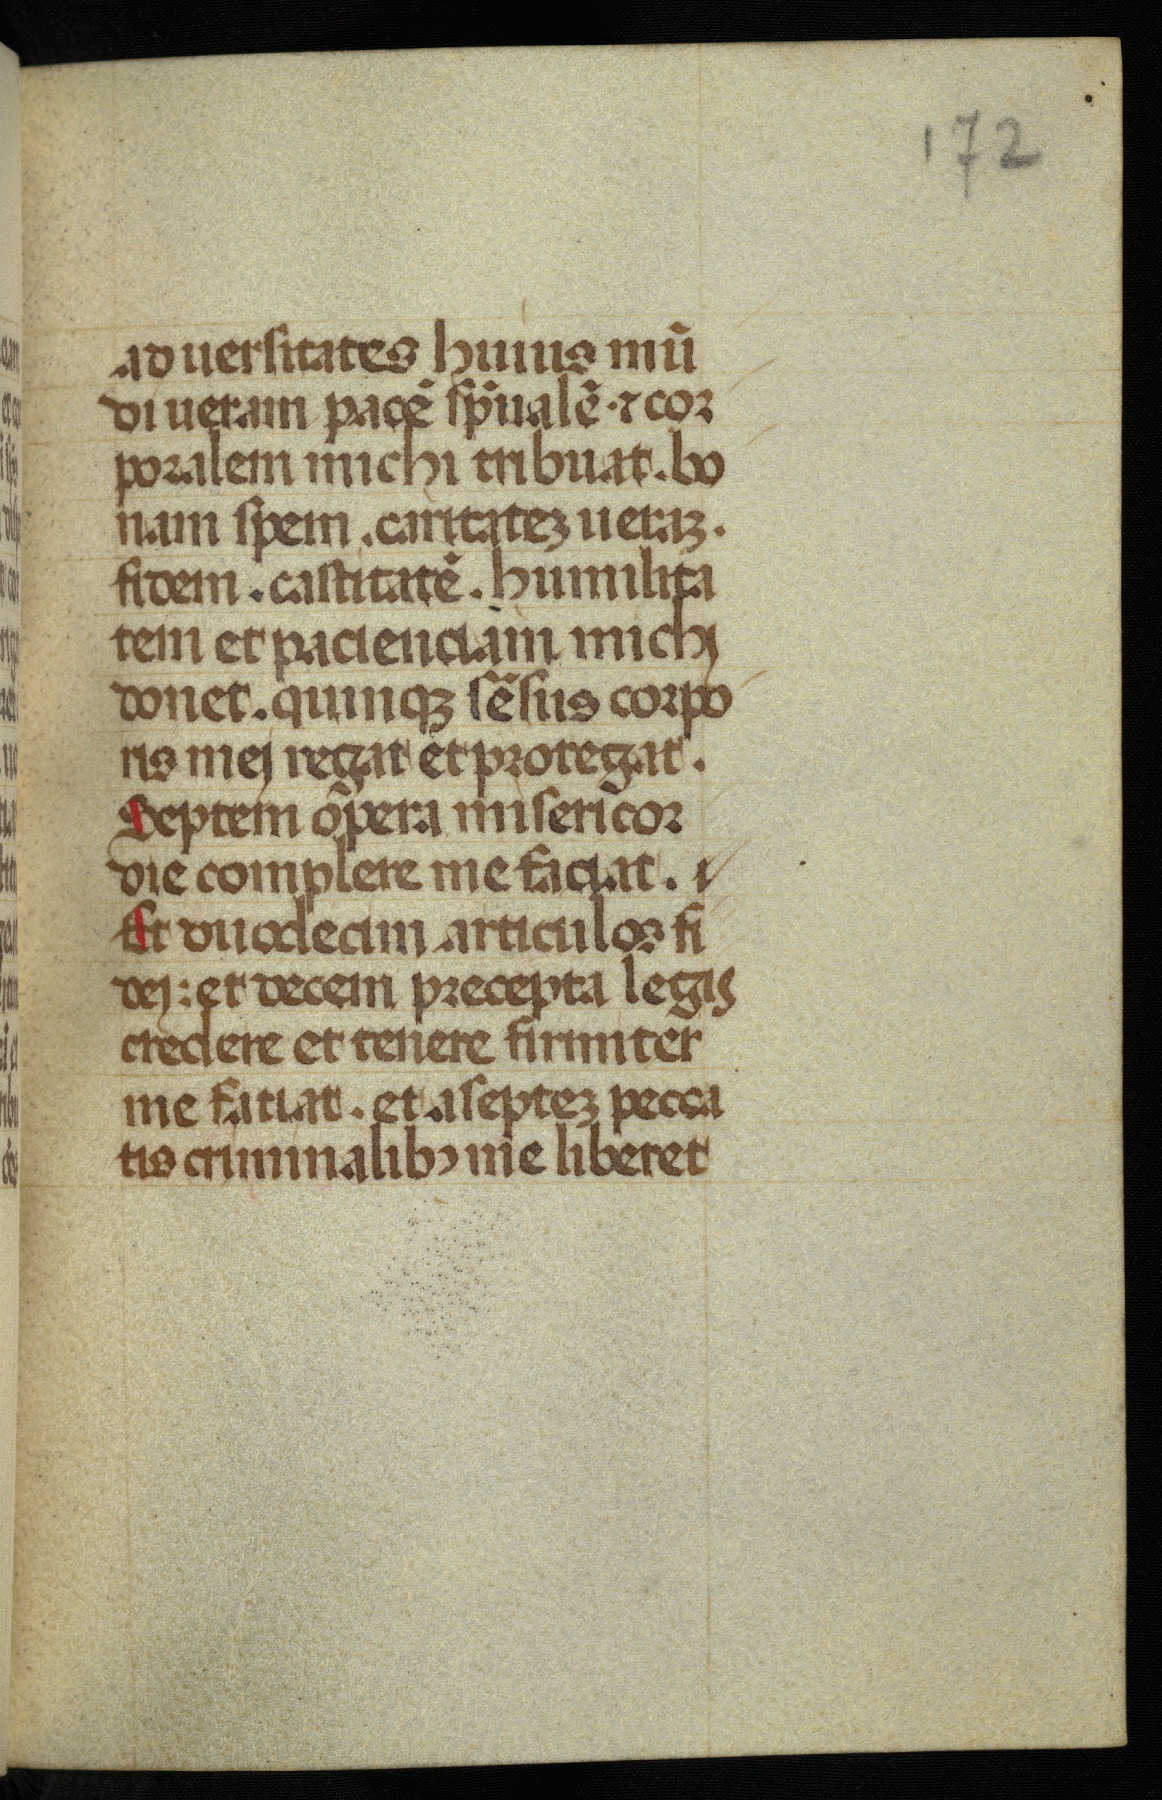 172
aduersitates huius mū
di ueram pacē sp̄ualē · ⁊ cor
poralem michi tribuat . bo
nam spem . caritateꝫ ueraꝫ .
fidem . castitatē . humilita
tem et pacienciam michj
donet . quinqꝫ sēsus corpo
ris mej regat et protegat .
Septem opera misericor
die complere me faciat . i
Et duodecim articulos fi
dej : et decem precepta legis
credere et tenere firmiter
me fatiat . et a septeꝫ pecca
tis criminalibꝫ me liberet